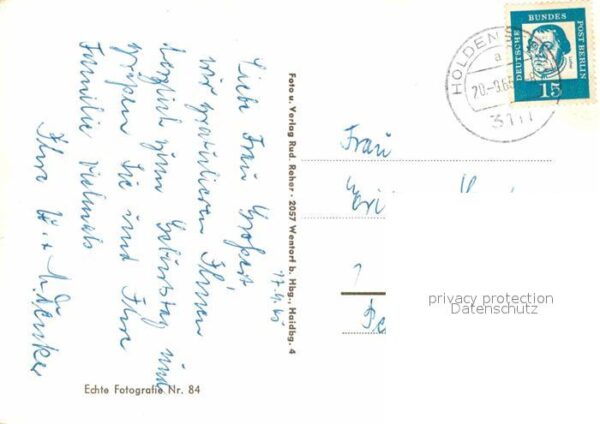 17.9.65
Liebe Frau
wir gratulieren Ihnen
herzlich zum Geburtstag und
grüßen Sie und Ihre
Familie vielmals
Ihre
Foto u. Verlag Rud. Reher · 2057 Wentorf b. Hbg., Haidbg. 4
Echte Fotografie Nr. 84
DEUTSCHE
BUNDES
POST BERLIN
15
HOLDEN
a
20.-9.65
311
Frau
privacy protection
Datenschutz